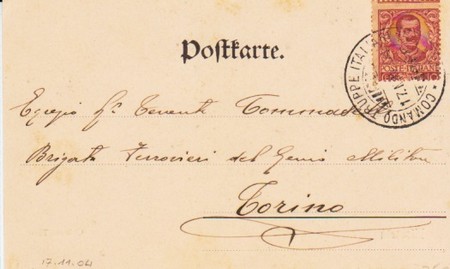 Postkarte.
POSTE ITALIANE
COMANDO TRUPPE ITALIA
Egregio Sr. Tenente Tommaso
Brigata Ferrovieri del Genio Militare
Torino
17.11.04